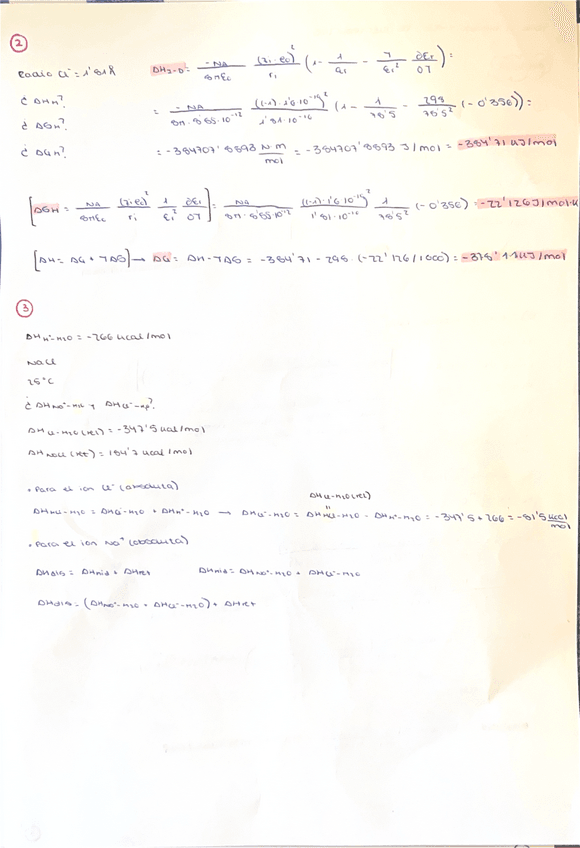 2
Radio Cl⁻ = 1'81Å
ΔH₂₋₀ = -NA/8πε₀ (zᵢ·e₀)²/rᵢ (1 - 1/εᵢ - T/εᵢ² ∂εᵣ/∂T) :
¿ΔHn?
¿ΔSn?
¿ΔGn?
= -NA/8π·8'85·10⁻¹² ((-1)·1'6·10⁻¹⁹)²/1'81·10⁻¹⁰ (1 - 1/78'5 - 298/78'5² (-0'356)) :
= -384707'8893 N·m/mol = -384707'8893 J/mol = -384'71 kJ/mol
[ΔSH = NA/8πε₀ (z·e₀)²/rᵢ 1/εᵢ² ∂εᵣ/∂T] = NA/8π·8'85·10⁻¹² ((-1)·1'6·10⁻¹⁹)²/1'81·10⁻¹⁰ 1/78'5² (-0'356) = -22'126 J/mol·K
[ΔH = ΔG + TΔS] → ΔG = ΔH - TΔS = -384'71 - 298·(-22'126/1000) = -378'11 kJ/mol
3
ΔH H⁺-H₂O = -266 kcal/mol
NaCl
25°C
¿ΔH Na⁺-H₂O y ΔH Cl⁻-H₂O?
ΔH Cl-H₂O (rel) = -347'5 kcal/mol
ΔH NaCl (ret) = 184'7 kcal/mol
• Para el ion Cl⁻ (absoluta)
ΔH Cl-H₂O (rel)
ΔH HCl-H₂O = ΔH Cl⁻-H₂O + ΔH H⁺-H₂O → ΔH Cl⁻-H₂O = ΔH HCl-H₂O - ΔH H⁺-H₂O = -347'5 + 266 = -81'5 kcal/mol
• Para el ion Na⁺ (absoluta)
ΔH dis = ΔH hid + ΔH ret ΔH hid = ΔH Na⁺-H₂O + ΔH Cl⁻-H₂O
ΔH dis = (ΔH Na⁺-H₂O + ΔH Cl⁻-H₂O) + ΔH ret